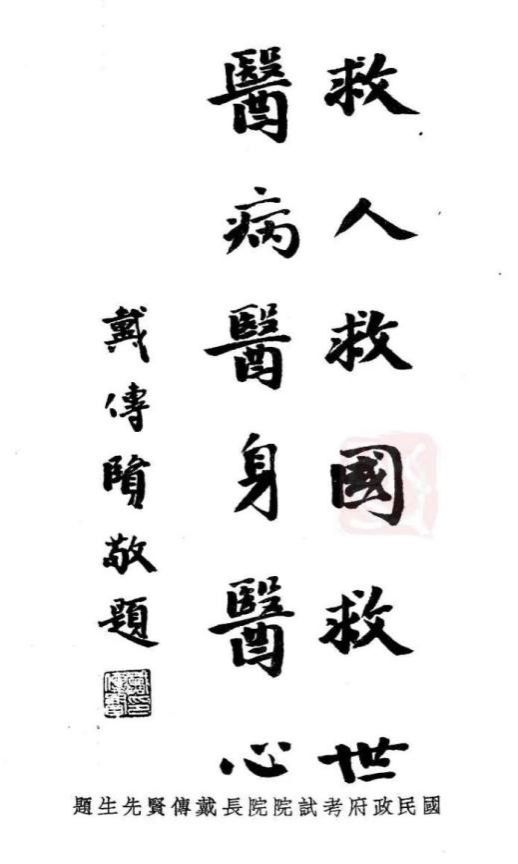 救人救國救世
醫病醫身醫心
戴傳賢敬題
國民政府考試院院長戴傳賢先生題